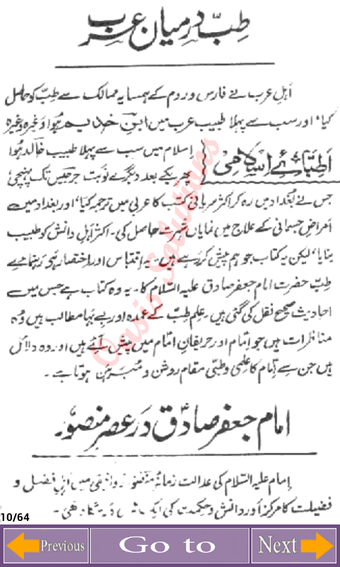 طبّ درمیان عرب
اہل عرب نے فارس و روم کے ہمسایہ ممالک سے طبّ کو حاصل
کیا، اور سب سے پہلا طبیب عرب میں ابن حذیم ہوا وغیرہ وغیرہ
اطبائے اسلامی
اسلام میں سب سے پہلا طبیب خالد ہوا
پھر یکے بعد دیگرے نوبت جرجیس تک پہنچی
جس نے بغداد میں رہ کر اکثر سریانی کتب کا عربی میں ترجمہ کیا، اور بغداد میں
امراض جسمانی کے علاج میں نمایاں شہرت حاصل کی۔ اکثر اہل دانش کو طبیب
بنایا، لیکن یہ کتاب جو ہم پیش کر رہے ہیں۔ یہ اقتباس اور اختصار ہو رہا ہے
طبّ حضرت امام جعفر صادق علیہ السّلام کا۔ یہ وہ کتاب ہے جس میں سے
احادیث صحیح نقل کی گئی ہیں۔ علم طبّ کے عمدہ اور بے بہا مطالب ہیں وہ
مناظرات ہیں جو امام اور حریفان امام میں پیش آئے ہیں اور وہ دلائل
ہیں جن سے امام کا علمی و طبّی مقام روشن و مبرہن ہوتا ہے۔
Oasis Solutions
امام جعفر صادقؑ در عصر منصور۔
امام علیہ السّلام کی عدالت زمانۂ منصور میں اہل فضل و
فضیلت کا مرکز اور دانش و حکمت کی ایک
10/64
Previous Go to Next